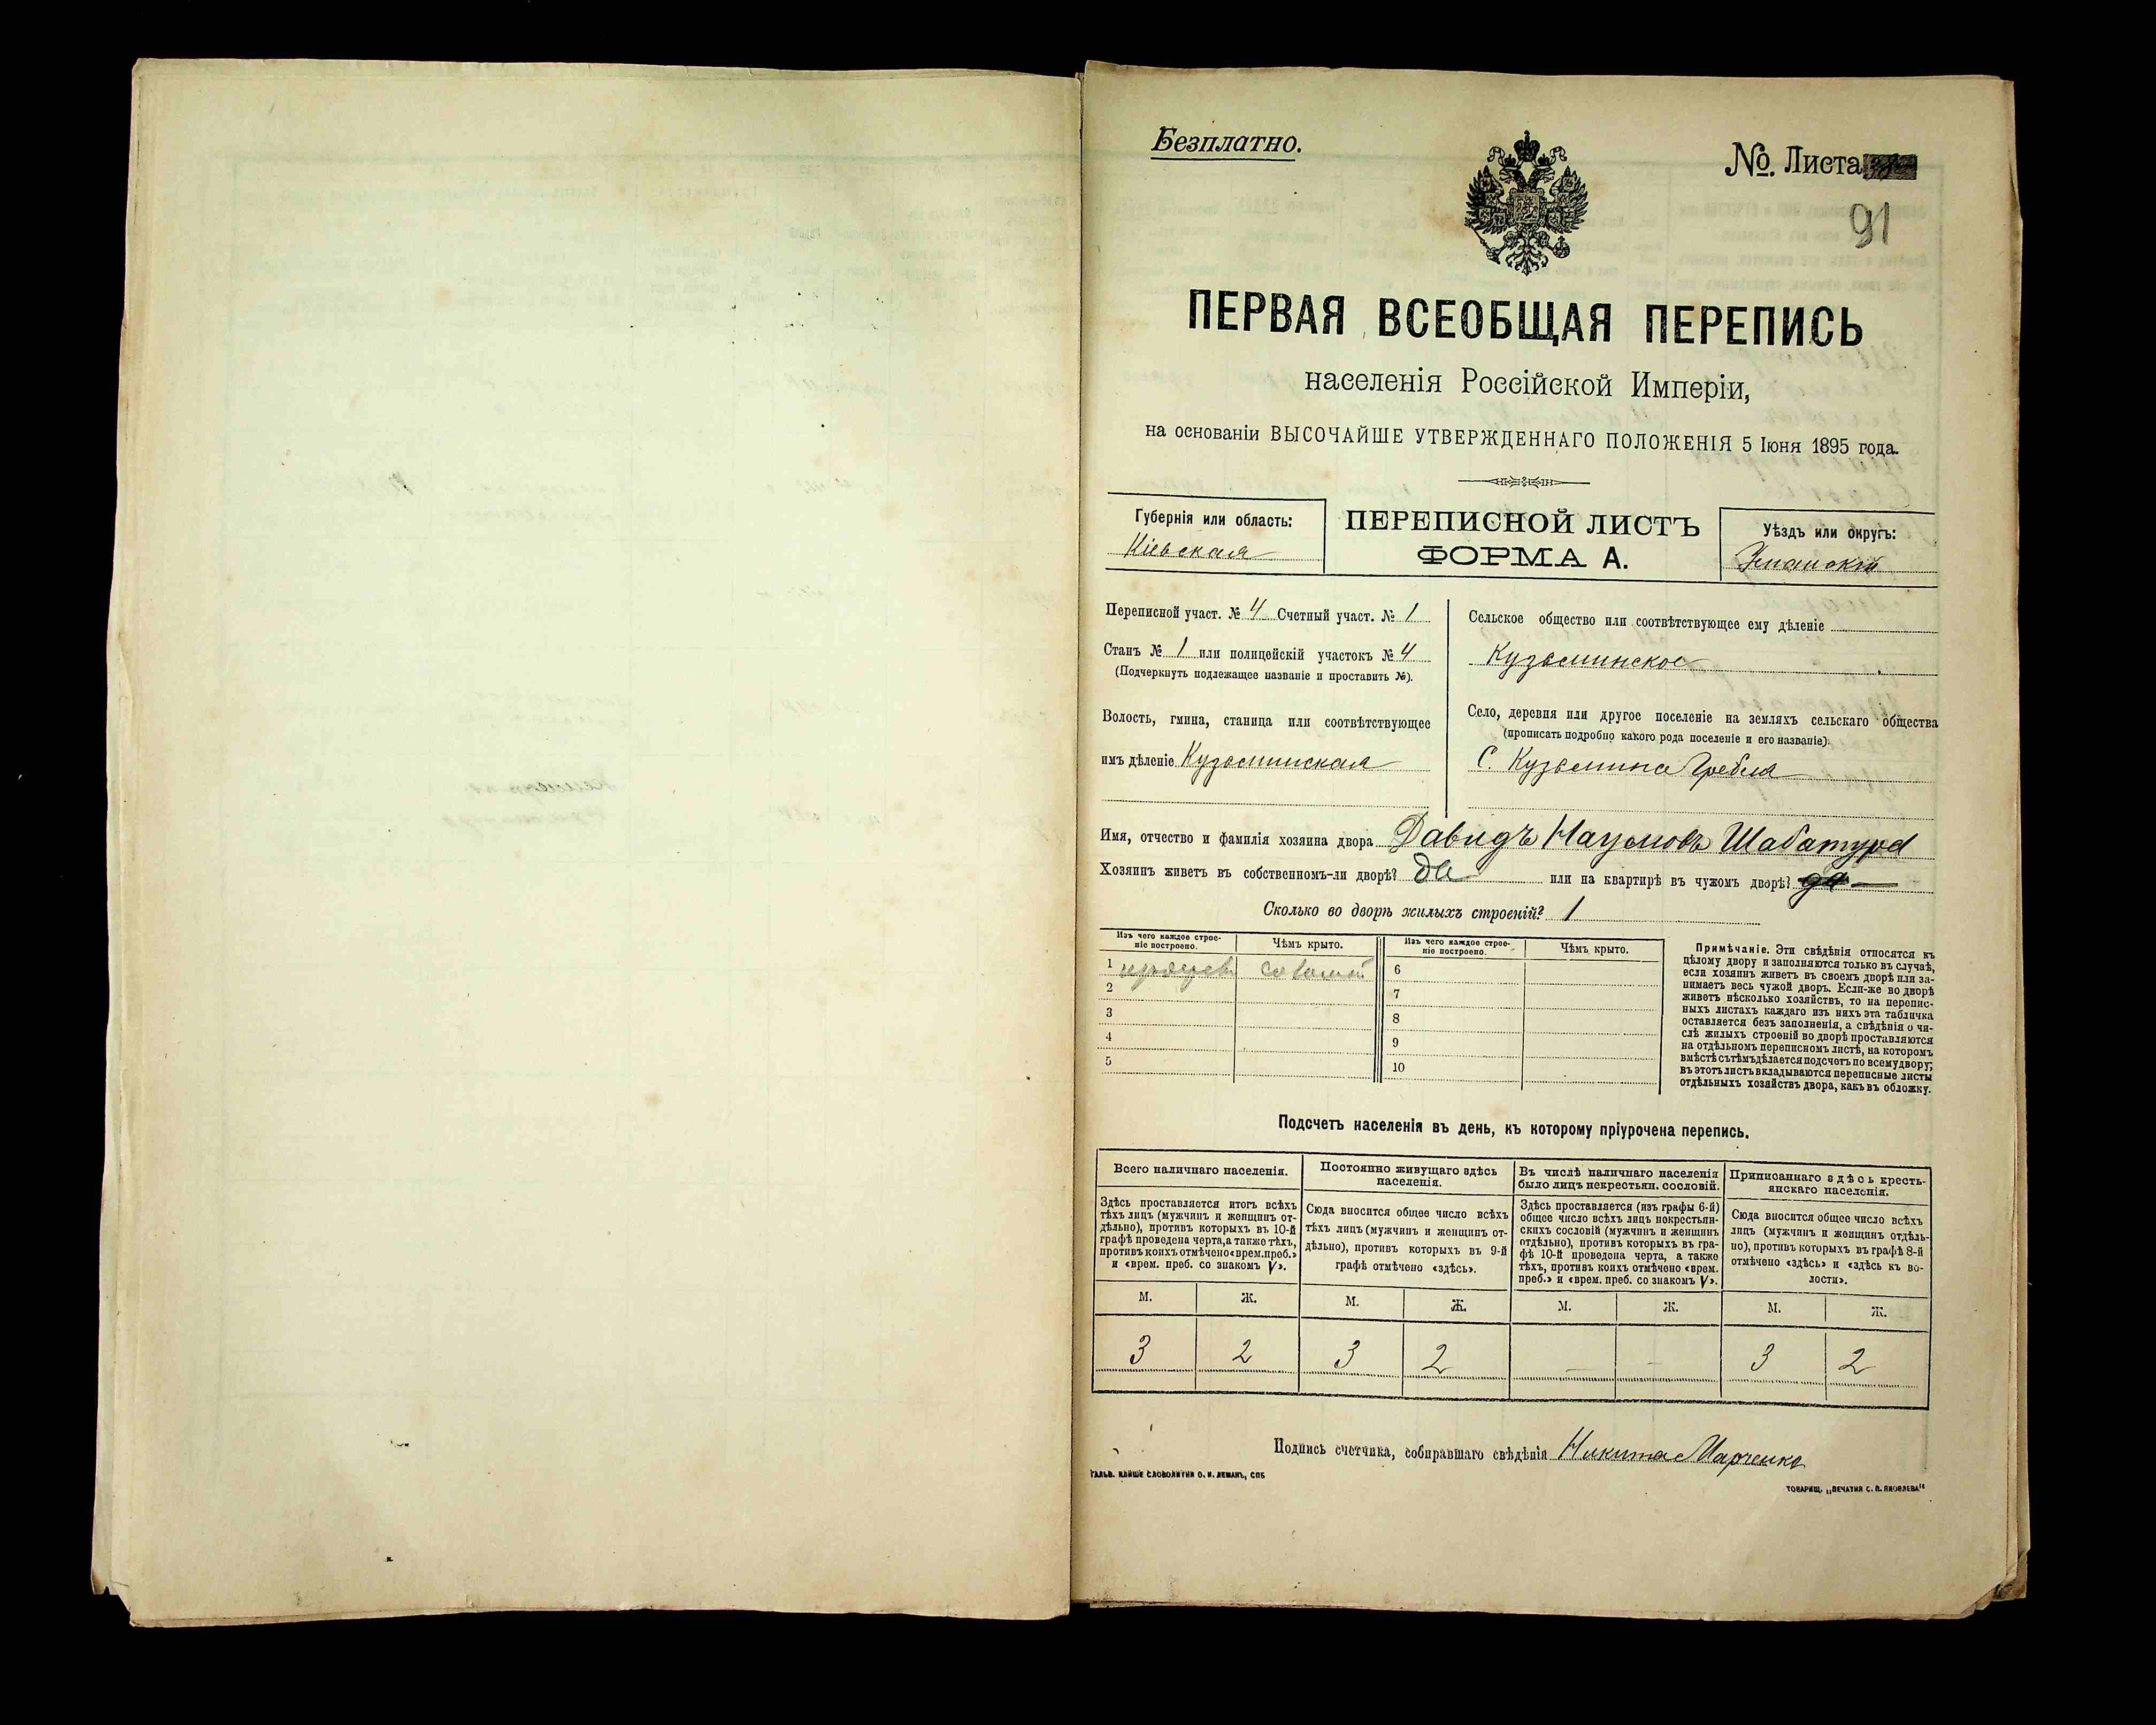 Безплатно.
No. Листа
91
ПЕРВАЯ ВСЕОБЩАЯ ПЕРЕПИСЬ
населенія Россійской Имперіи,
на основаніи ВЫСОЧАЙШЕ УТВЕРЖДЕННАГО ПОЛОЖЕНІЯ 5 Іюня 1895 года.
Губернія или область:
Кіевская
ПЕРЕПИСНОЙ ЛИСТЪ
ФОРМА А.
Уѣздъ или округъ:
Уманскій
Переписной участ. № 4 Счетный участ. № 1
Станъ № 1 или полицейскій участокъ № 4
(Подчеркнуть подлежащее названіе и проставить №).
Волость, гмина, станица или соотвѣтствующее
имъ дѣленіе Кузьминская
Сельское общество или соотвѣтствующее ему дѣленіе
Кузьминское
Село, деревня или другое поселеніе на земляхъ сельскаго общества
(прописать подробно какого рода поселеніе и его названіе)
С. Кузьмина Гребля
Имя, отчество и фамилія хозяина двора Давидъ Наумовъ Шабатура
Хозяинъ живетъ въ собственномъ-ли дворѣ? да или на квартирѣ въ чужомъ дворѣ? —
Сколько во дворѣ жилыхъ строеній? 1
Изъ чего каждое строе-
ніе построено.
Чѣмъ крыто.
Изъ чего каждое строе-
ніе построено.
Чѣмъ крыто.
1 соломой 6
2 7
3 8
4 9
5 10
Примѣчаніе. Эти свѣдѣнія относятся къ
цѣлому двору и заполняются только въ случаѣ,
если хозяинъ живетъ въ своемъ дворѣ или за-
нимаетъ весь чужой дворъ. Если-же во дворѣ
живетъ нѣсколько хозяйствъ, то на перепис-
ныхъ листахъ каждаго изъ нихъ эта табличка
оставляется безъ заполненія, а свѣдѣнія о чи-
слѣ жилыхъ строеній во дворѣ проставляются
на отдѣльномъ переписномъ листѣ, на которомъ
вмѣстѣ съ тѣмъ дѣлается подсчетъ по всему двору;
въ этотъ листъ вкладываются переписные листы
отдѣльныхъ хозяйствъ двора, какъ въ обложку.
Подсчетъ населенія въ день, къ которому пріурочена перепись.
Всего наличнаго населенія.
Здѣсь проставляется итогъ всѣхъ
тѣхъ лицъ (мужчинъ и женщинъ от-
дѣльно), противъ которыхъ въ 10-й
графѣ проведена черта, а также тѣхъ,
противъ коихъ отмѣчено «врем. преб.»
и «врем. преб. со знакомъ V».
Постоянно живущаго здѣсь
населенія.
Сюда вносится общее число всѣхъ
тѣхъ лицъ (мужчинъ и женщинъ от-
дѣльно), противъ которыхъ въ 9-й
графѣ отмѣчено «здѣсь».
Въ числѣ наличнаго населенія
было лицъ некрестьян. сословій.
Здѣсь проставляется (изъ графы 6-й)
общее число всѣхъ лицъ некрестьян-
скихъ сословій (мужчинъ и женщинъ
отдѣльно), противъ которыхъ въ гра-
фѣ 10-й проведена черта, а также
тѣхъ, противъ коихъ отмѣчено «врем.
преб.» и «врем. преб. со знакомъ V».
Приписаннаго здѣсь кресть-
янскаго населенія.
Сюда вносится общее число всѣхъ
лицъ (мужчинъ и женщинъ отдѣль-
но), противъ которыхъ въ графѣ 8-й
отмѣчено «здѣсь» и «здѣсь къ во-
лости».
М. Ж. М. Ж. М. Ж. М. Ж.
3 2 3 2 — — 3 2
Подпись счетчика, собиравшаго свѣдѣнія Никита Марченко
ГАЛЬВ. КЛИШЕ СЛОВОЛИТНИ О. И. ЛЕМАНЪ, СПБ
ТОВАРИЩ. „ПЕЧАТНЯ С. П. ЯКОВЛЕВА"